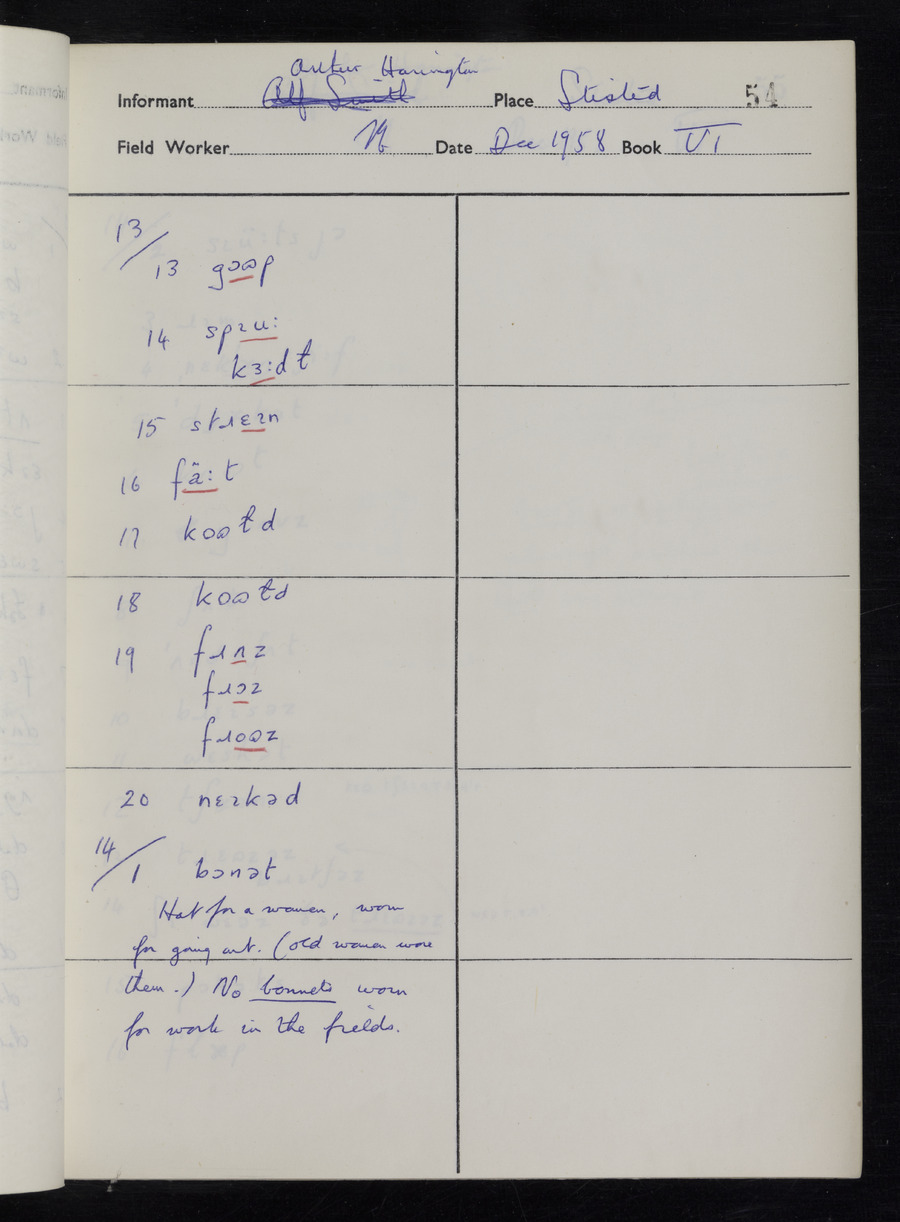 Arthur Harington
Informant Alf Smith Place Stisted 54
Field Worker Date Dec 1958 Book VI
13/
13 goʊp
14 spɹu:
kɜ:dɫ
15 stɹɛɪn
16 fä:t
17 koʊɫd
18 koʊɫd
19 fɹʌz
fɹɔz
fɹoʊz
20 nɛɪkəd
14/
1 bɔnət
Hat for a woman, worn
for going out. (old women wore
them.) No bonnets worn
for work in the fields.